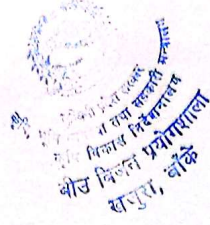 प्रदेश सरकार
तथा सहकारी मन्त्रालय
कृषि विकास निर्देशनालय
बीउ बिजन प्रयोगशाला
खजुरा, बाँके